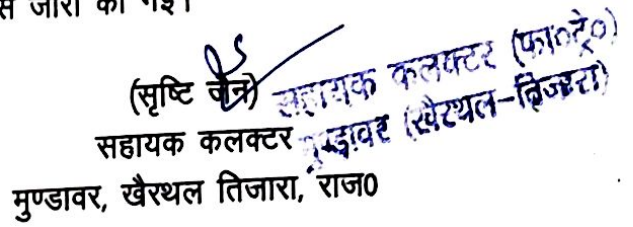 से जारी की गई।
(सृष्टि जैन)
सहायक कलक्टर
मुण्डावर, खैरथल तिजारा, राज0
सहायक कलक्टर (फा०ट्रे०)
मुण्डावर (खैरथल-तिजारा)